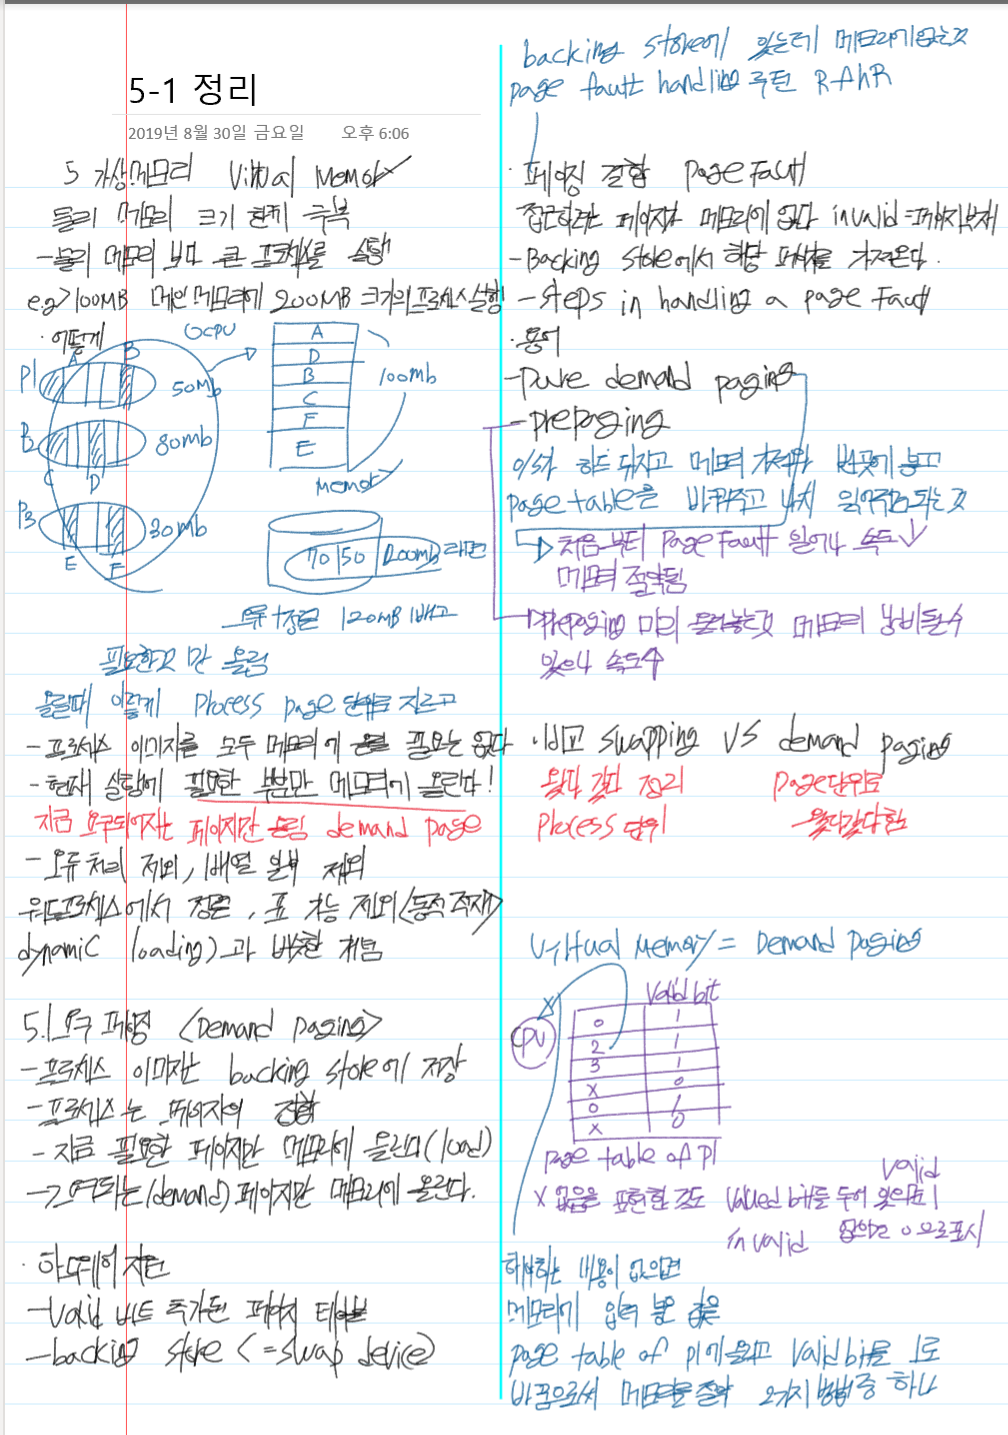 5-1 정리
2019년 8월 30일 금요일 오후 6:06
5 가상메모리 Virtual Memory
물리 메모리 크기 한계 극복
-물리 메모리 보다 큰 프로세스를 실행
e.g>100MB 메인메모리에 200MB 크기의 프로세스 실행
·어떻게
CPU
P1 A B 50Mb
P2 C D 80mb
P3 E F 30mb
A
D
B
C
F
E
100mb
Memory
70 50 200mb 라면
오류+정렬 120MB 빼고
필요한것 만 올림
올릴때 이렇게 Process page 단위로 자르고
-프로세스 이미지를 모두 메모리에 올릴 필요는 없다
-현재 실행에 필요한 부분만 메모리에 올린다!
지금 요구되어지는 페이지만 올림 demand page
-오류처리 제외, 배열 일부 제외
워드프로세스에서 정렬, 표 기능 제외(동적 적재)
dynamic loading)과 비슷한 개념
5.1 요구 페이징 <Demand Paging>
-프로세스 이미지는 backing store에 저장
-프로세스는 페이지의 조합
-지금 필요한 페이지만 메모리에 올린다(load)
->요구되는(demand) 페이지만 메모리에 올린다.
·하드웨어 지원
-Valid 비트 추가된 페이지 테이블
-backing store (=swap device)
backing store에 있는데 메모리에 없는것
page fault handling 루틴
·페이징 결함 Page Fault
접근하려는 페이지가 메모리에 없다 invalid=페이지부재
-Backing store에서 해당 페이지를 가져온다.
-steps in handling a page Fault
·용어
-Pure demand paging
-prepaging
O/S가 하드 뒤지고 메모리 가져와 빈곳에 놓고
page table을 바꿔주고
처음부터 Page Fault 일어나 속도↓
메모리 절약됨
Prepaging 미리 올려놓는것 메모리 낭비될수
있으나 속도↑
·비교 swapping VS demand paging
왔다 갔다 정리 Page단위로
Process 단위 왔다갔다함
Virtual Memory = Demand Paging
Valid bit
CPU X
0 1
2 1
3 1
X 0
0 1
X 0
Page table of P1
X 없음을 표현한 것도 Valued bit를 두어 있으면 1 valid
invalid 없으면 0으로 표시
하는 내용이 없으면
메모리의
page table of p1에 올리고 Valid bit를 1로
바꿈으로써 메모리를 절약 2가지 방법중 하나